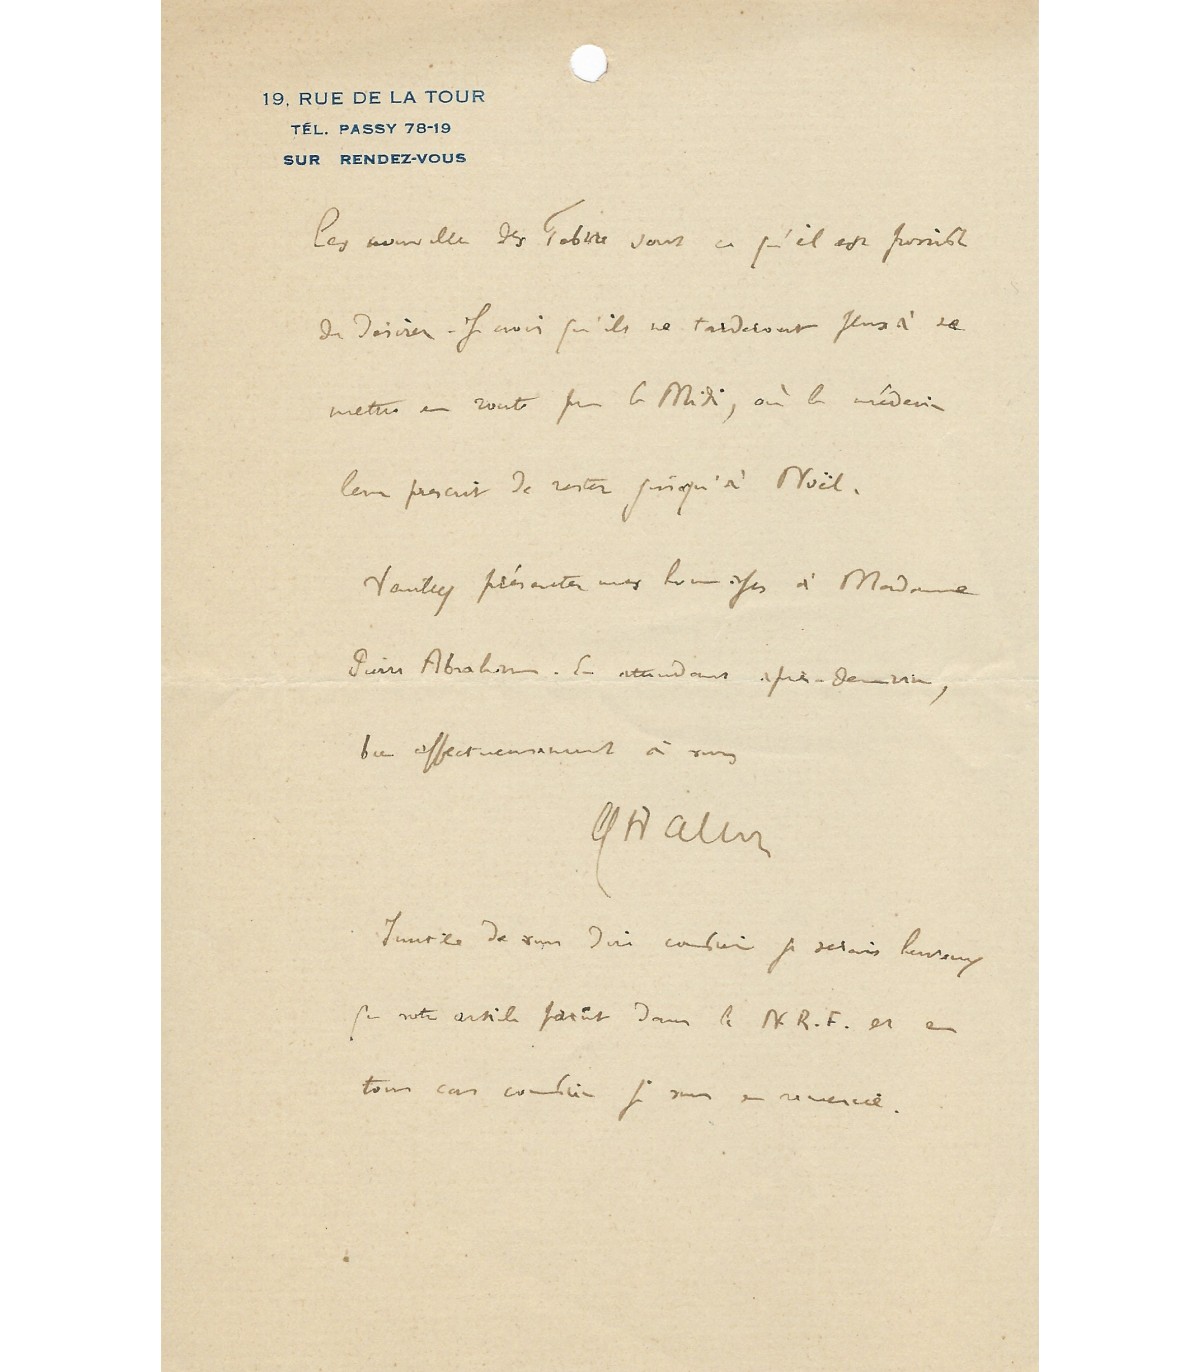 19, RUE DE LA TOUR
TÉL. PASSY 78-19
SUR RENDEZ-VOUS
Les nouvelles des Fabre sont ce qu'il est possible
de désirer. Je crois qu'ils ne tarderont plus à se
mettre en route pour le Midi, où le médecin
leur prescrit de rester jusqu'à Noël.
Veuillez présenter mes hommages à Madame
Pierre Abraham. En attendant après-demain,
bien affectueusement à vous
Inutile de vous dire combien je serais heureux
que votre article parût dans la N.R.F. et en
tous cas combien je vous en remercie.